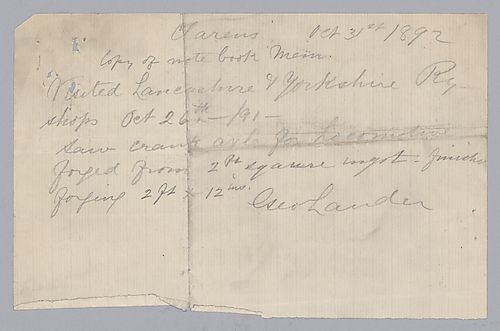 Clarens Oct 31st 1892
Copy of note book Mem.
Visited Lancashire & Yorkshire Ry
shops Oct 26th - /91 -
saw crank axle for Locomotive
forged from 2 ft square ingot - finished
forging 2 ft x 12 ins.
Geo Lauder